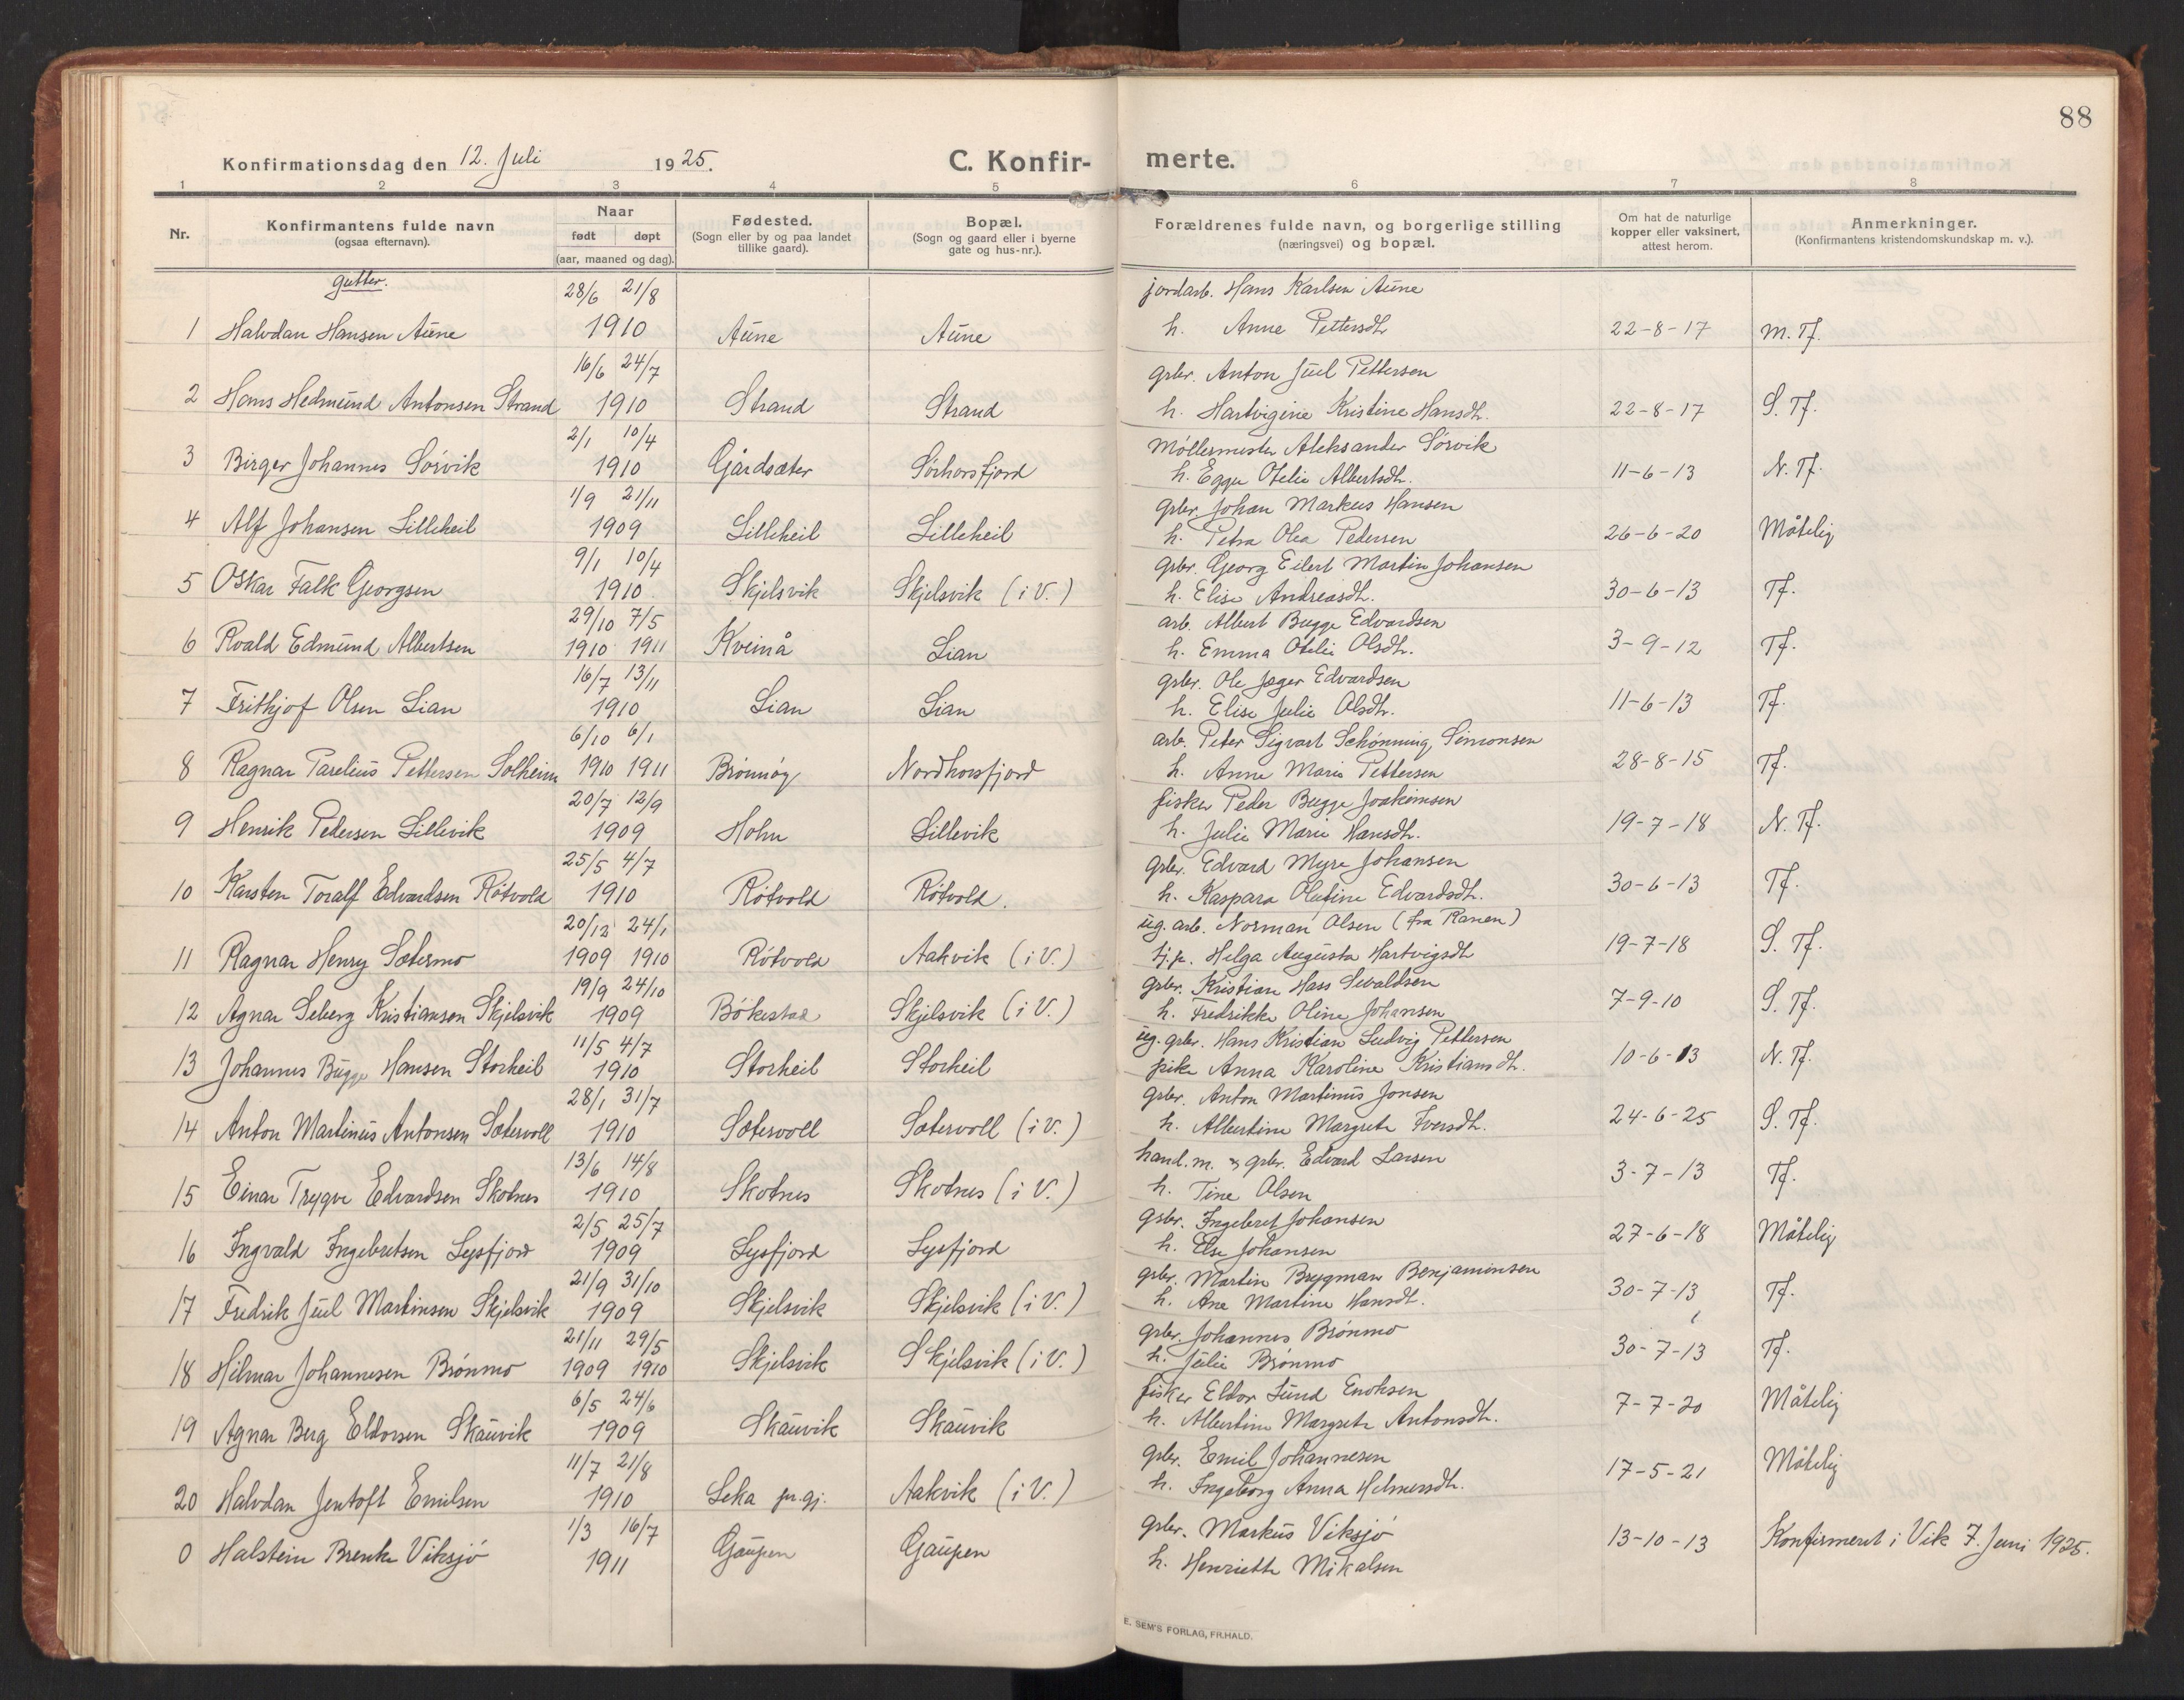 88
Konfirmationsdag den 12. Juli 1925.
C. Konfir-merte.
1 2 3 4 5 6 7 8
Nr.
Konfirmantens fulde navn
(ogsaa efternavn).
Naar
født døpt
(aar, maaned og dag).
Fødested.
(Sogn eller by og paa landet
tillike gaard).
Bopæl.
(Sogn og gaard eller i byerne
gate og hus-nr.).
Forældrenes fulde navn, og borgerlige stilling
(næringsvei) og bopæl.
Om hat de naturlige
kopper eller vaksinert,
attest herom.
Anmerkninger.
(Konfirmantens kristendomskundskap m. v.).
gutter.
28/6 21/8 jordarb. Hans Karlsen Aune
1 Halvdan Hansen Aune 1910 Aune Aune h. Anne Pettersdtr 22-8-17 M. Tf.
16/6 24/7 grbr. Anton Juul Pettersen
2 Hans Hedmund Antonsen Strand 1910 Strand Strand h. Hartvigine Kristine Hansdtr. 22-8-17 S. Tf.
2/1 10/4 Møllermester Aleksander Sørvik
3 Birger Johannes Sørvik 1910 Gårdsæter Sørhorsfjord h. Egga Otelie Albertsdtr. 11-6-13 N. Tf.
1/9 21/11 grbr. Johan Markus Hansen
4 Alf Johansen Lilleheil 1909 Lilleheil Lilleheil h. Petra Olea Pedersen 26-6-20 Måtelig
9/1 10/4 grbr. Georg Eilert Martin Johansen
5 Oskar Falk Georgsen 1910 Skjelsvik Skjelsvik (i V.) h. Elise Andreasdtr. 30-6-13 Tf.
29/10 7/5 arb. Albert Bugge Edvardsen
6 Roald Edmund Albertsen 1910 1911 Kveinå Lian h. Emma Otelie Olsdtr. 3-9-12 Tf.
16/7 13/11 grbr. Ole Jæger Edvardsen
7 Frithjof Olsen Lian 1910 Lian Lian h. Elise Julie Olsdtr. 11-6-13 Tf.
6/10 6/1 arb. Peter Sigvart Schønning Simonsen
8 Ragnar Parelius Pettersen Solheim 1910 1911 Brønnøy Nordhorsfjord h. Anne Marie Pettersen 28-8-15 Tf.
20/7 12/9 fisker Peder Bugge Joakimsen
9 Henrik Pedersen Lillevik 1909 Holm Lillevik h. Julie Marie Hansdtr. 19-7-18 N. Tf.
25/5 4/7 grbr. Edvard Myre Johansen
10 Karsten Toralf Edvardsen Røtvold 1910 Røtvold Røtvold. h. Kaspara Olufine Edvardsdtr. 30-6-13 Tf.
20/12 24/1 ug. arb. Norman Olsen (fra Ranen)
11 Ragnar Henry Sætermo 1909 1910 Røtvold Aakvik (i V.) tj.p. Helga Augusta Hartvigsdtr 19-7-18 S. Tf.
19/9 24/10 grbr. Kristian Hass Sevaldsen
12 Agnar Seberg Kristiansen Skjelsvik 1909 Bøkestad Skjelsvik (i V.) h. Fredrikke Oline Johansen 7-9-10 S. Tf.
11/5 4/7 ug. grbr. Hans Kristian Ludvig Pettersen
13 Johannes Bugge Hansen Storheil 1910 Storheil Storheil pike Anna Karoline Kristiansdtr. 10-6-13 N. Tf.
28/1 31/7 grbr. Anton Martinus Jonsen
14 Anton Martinus Antonsen Sætervoll 1910 Sætervoll Sætervoll (i V.) h. Albertine Margrete Iversdtr. 24-6-25 S. Tf.
13/6 14/8 hand.m. & grbr. Edvard Larsen
15 Einar Trygve Edvardsen Skotnes 1910 Skotnes Skotnes (i V.) h. Tine Olsen 3-7-13 Tf.
2/5 25/7 grbr. Ingebret Johansen
16 Ingvald Ingebretsen Lysfjord 1909 Lysfjord Lysfjord h. Else Johansen 27-6-18 Måtelig
21/9 31/10 grbr. Martin Brygman Benjaminsen
17 Fredrik Juul Martinsen Skjelsvik 1909 Skjelsvik Skjelsvik (i V.) h. Ane Martine Hansdt. 30-7-13 Tf.
21/11 29/5 grbr. Johannes Brønmo
18 Hilmar Johannesen Brønmo 1909 1910 Skjelsvik Skjelsvik (i V.) h. Julie Brønmo 30-7-13 Tf.
6/5 24/6 fisker Eldor Lund Enoksen
19 Agnar Berg Eldorsen Skauvik 1909 Skauvik Skauvik h. Albertine Margrete Antonsdtr. 7-7-20 Måtelig
11/7 21/8 grbr. Emil Johannesen
20 Halvdan Jentoft Emilsen 1910 Leka pr.gj. Aakvik (i V.) h. Ingeborg Anna Helmersdtr. 17-5-21 Måtelig
1/3 16/7 grbr. Markus Viksjø
0 Halstein Brenke Viksjø 1911 Gaupen Gaupen h. Henriette Mikalsen 13-10-13 Konfirmeret i Vik 7. Juni 1925.
E. SEM'S FORLAG, FR.HALD.